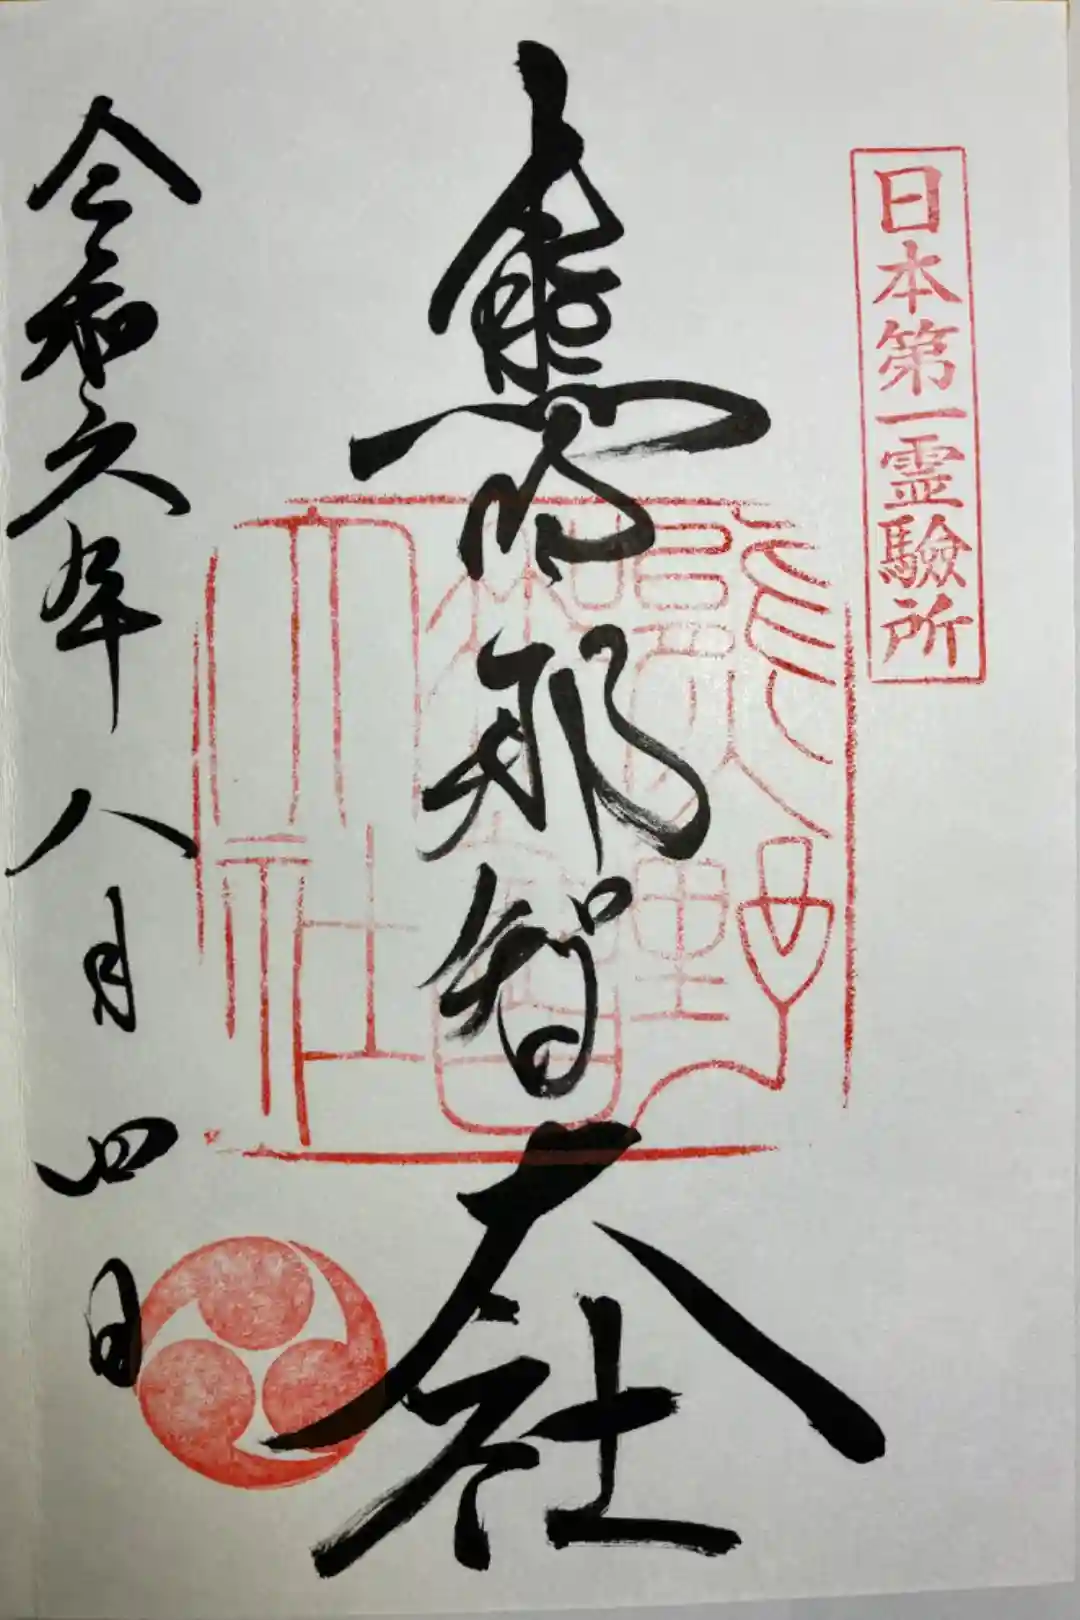 日本第一霊驗所
熊野那智大社
熊野
那智
大社
令和六年八月四日